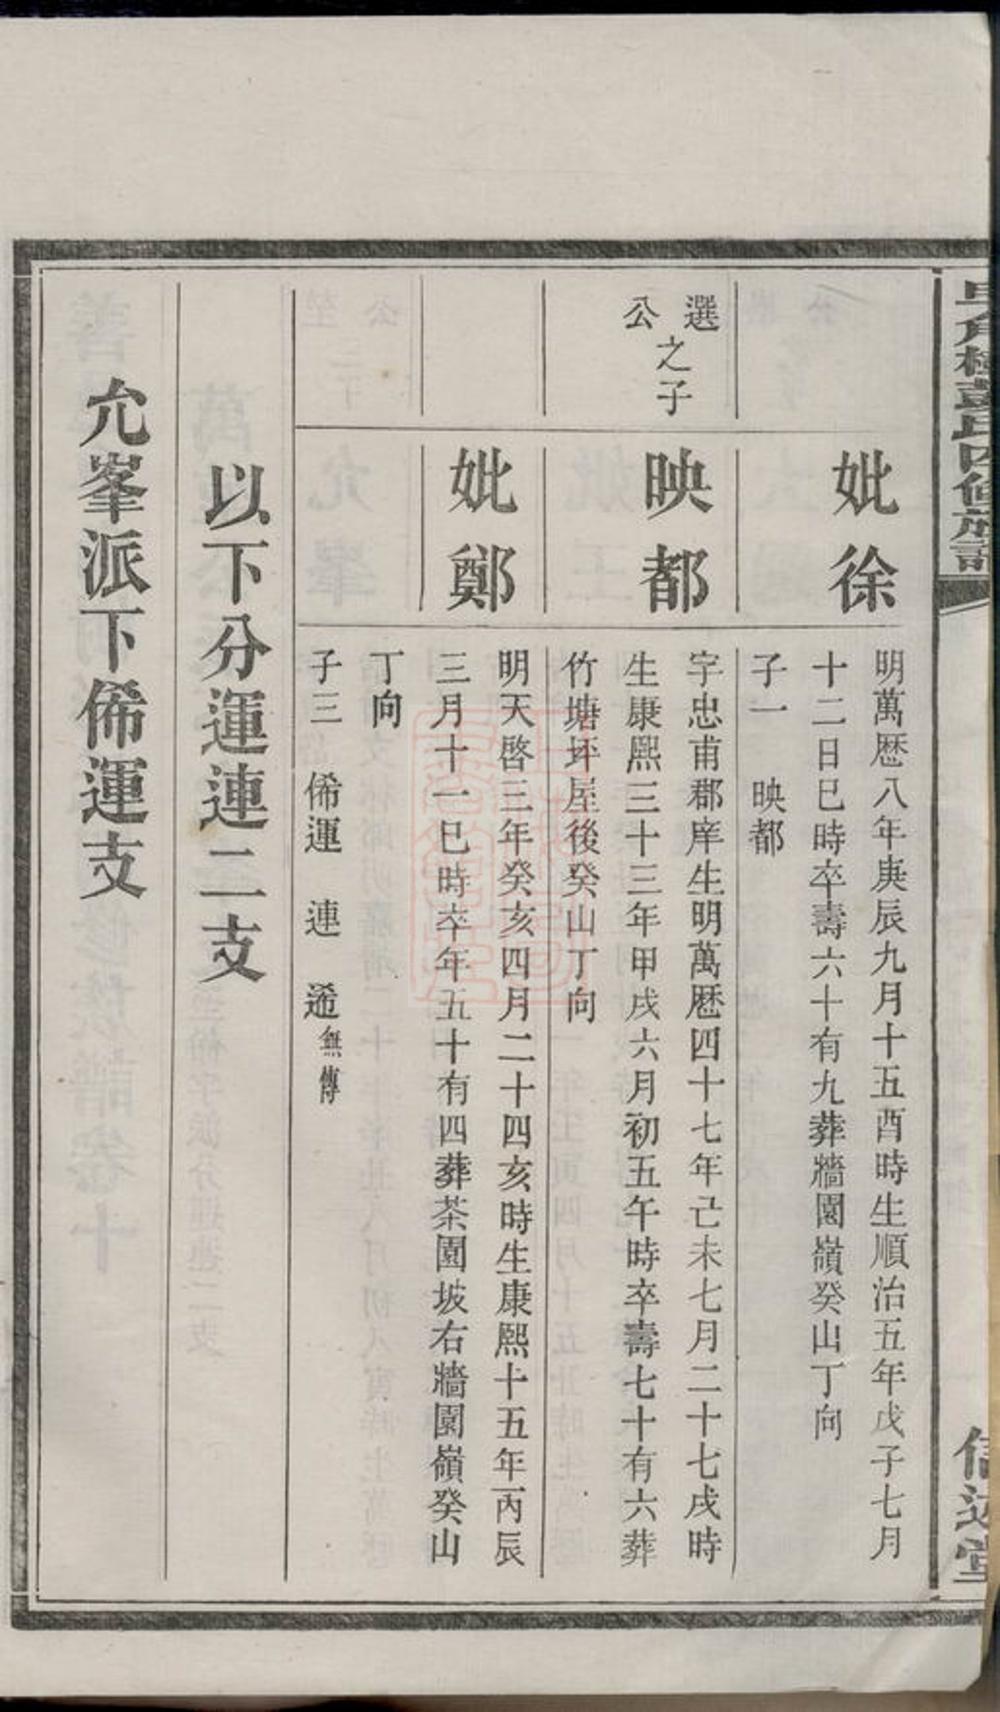 彭氏四修族譜
信述堂
妣徐
明萬歷八年庚辰九月十五酉時生順治五年戊子七月
十二日巳時卒壽六十有九葬牆園嶺癸山丁向
子一 映都
選公之子
映都
字忠甫郡庠生明萬歷四十七年己未七月二十七戌時
生康熙三十三年甲戌六月初五午時卒壽七十有六葬
竹塘坪屋後癸山丁向
妣鄭
明天啓三年癸亥四月二十四亥時生康熙十五年丙辰
三月十一巳時卒年五十有四葬茶園坡右牆園嶺癸山
丁向
子三 俙運 連 逦無傳
以下分運連二支
允峯派下俙運支